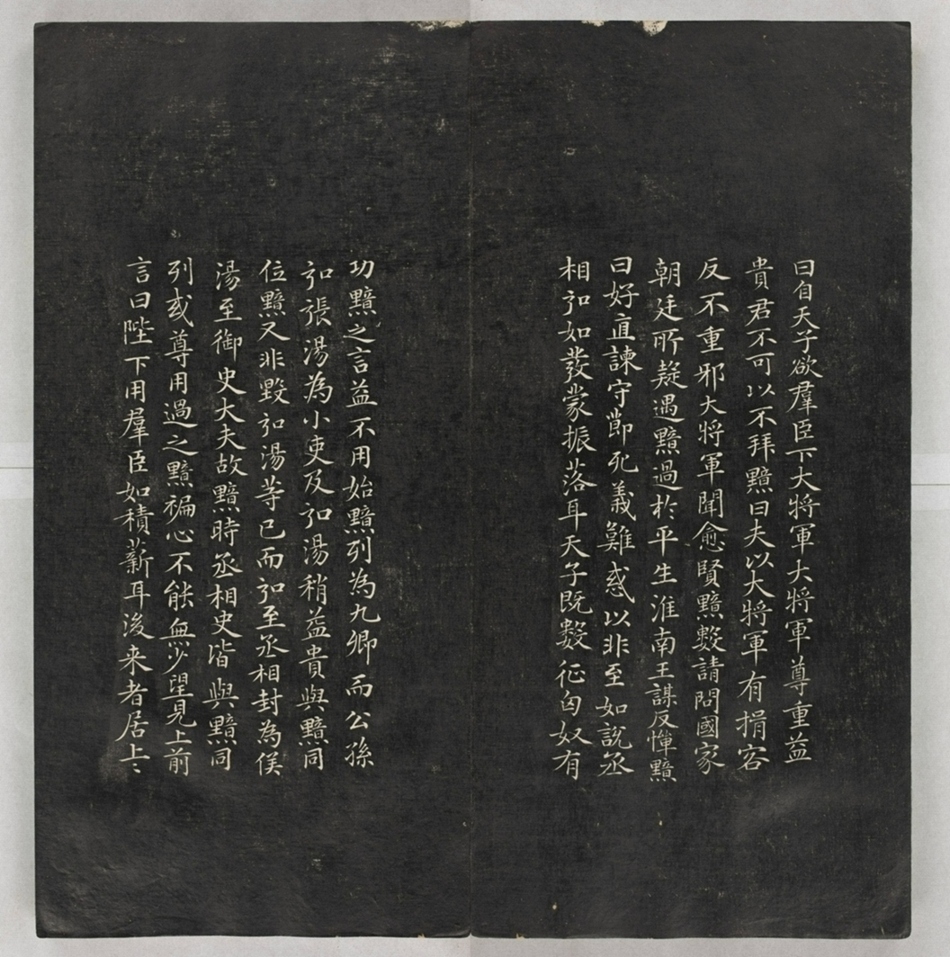 曰自天子欲羣臣下大將軍大將軍尊重益
貴君不可以不拜黯曰夫以大將軍有揖客
反不重邪大將軍聞愈賢黯數請問國家
朝廷所疑遇黯過於平生淮南王謀反惲黯
曰好直諫守節死義難惑以非至如說丞
相弘如發蒙振落耳天子既數征匈奴有
功黯之言益不用始黯列為九卿而公孫
弘張湯為小吏及弘湯稍益貴與黯同
位黯又非毀弘湯等已而弘至丞相封為侯
湯至御史大夫故黯時丞相史皆與黯同
列或尊用過之黯褊心不能無少望見上前
言曰陛下用羣臣如積薪耳後来者居上〻